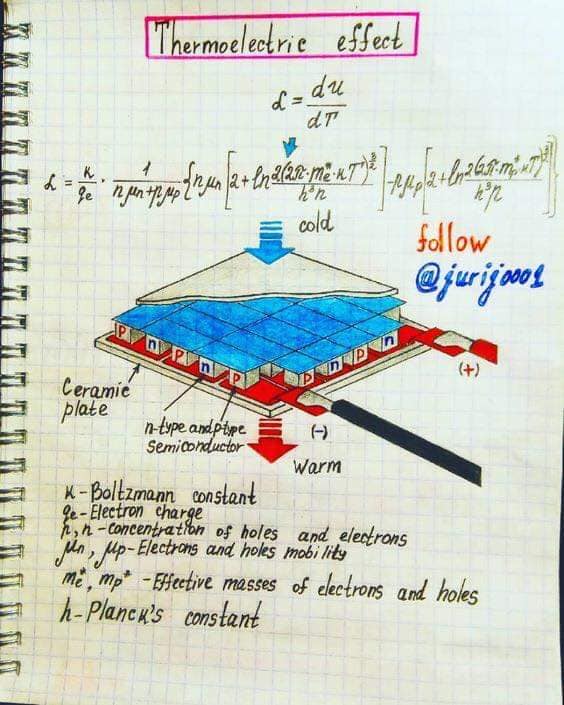 Thermoelectric effect
α = du/dT
α = κ/qe · 1/(nμn+pμp) {nμn[2+ln 2(2π·me*·κT)^3/2 / h³n] - pμp[2+ln 2(2π·mp*·κT)^3/2 / h³p]}
cold
follow
@jurij0001
p n p n p p n p n
(+)
Ceramic
plate
n-type and p-type
semiconductor
(-)
Warm
κ-Boltzmann constant
qe-Electron charge
p,n-concentration of holes and electrons
μn, μp-Electrons and holes mobility
me*, mp* -Effective masses of electrons and holes
h-Planck's constant